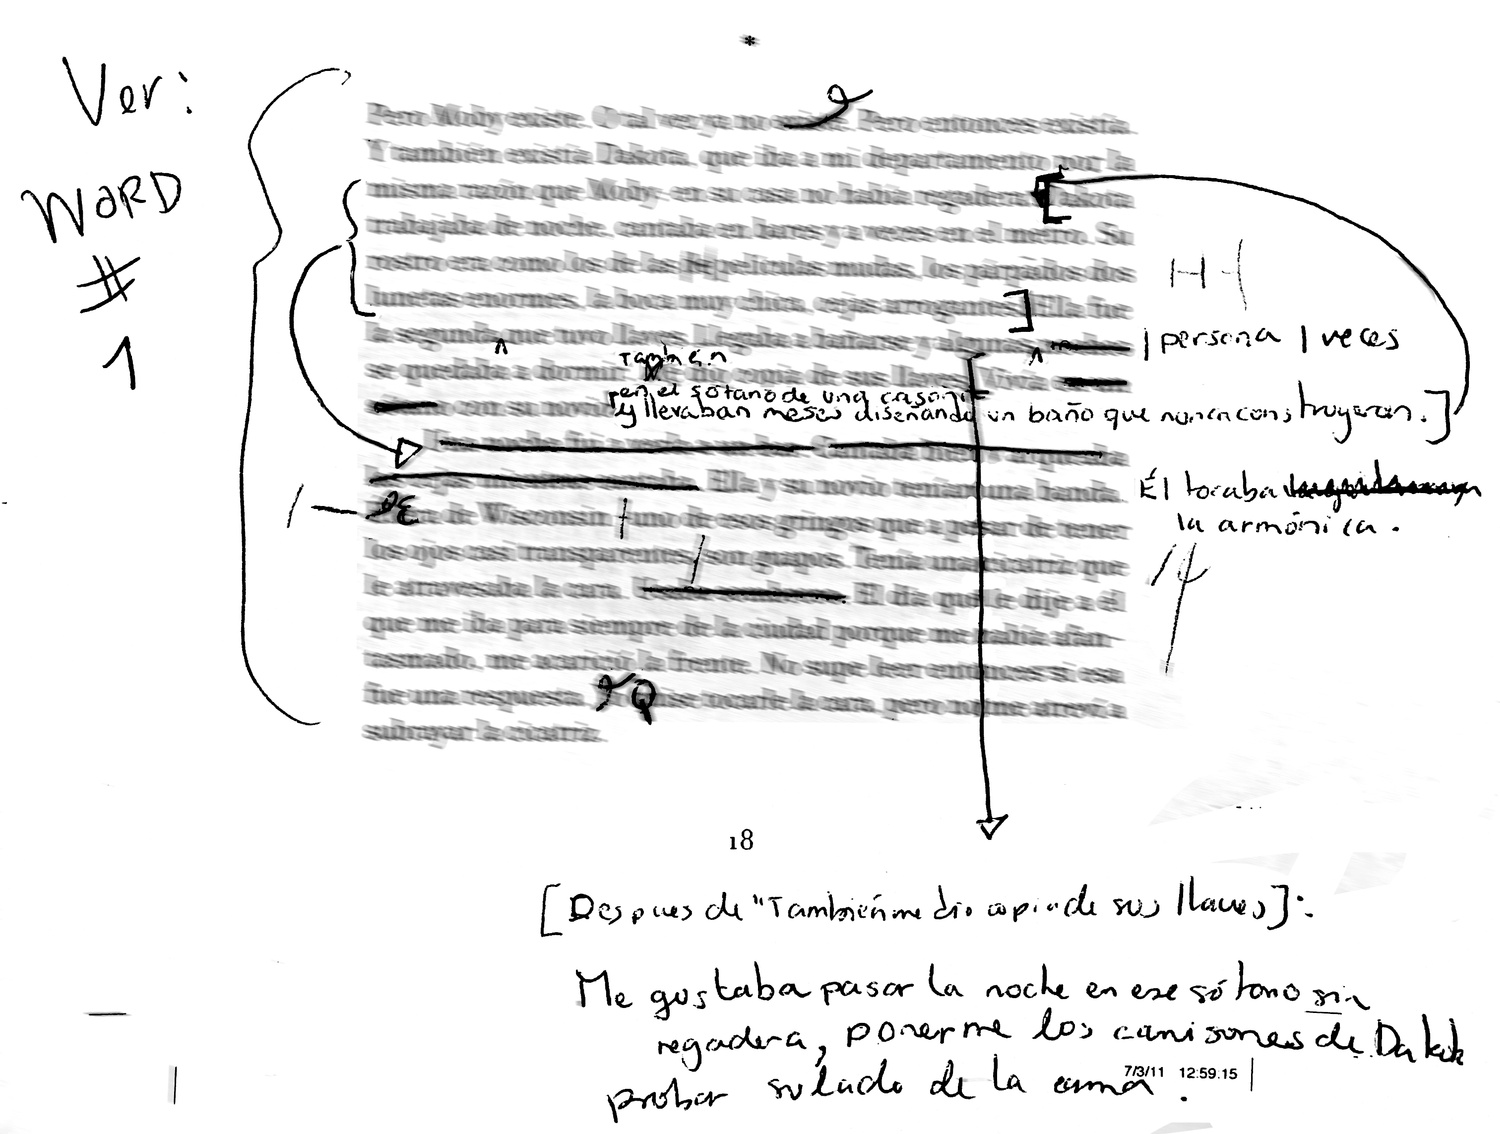 *
Ver:
WORD
#
1
Pero Moby existe. O tal vez ya no existe. Pero entonces existía.
Y también existía Dakota, que iba a mi departamento por la
misma razón que Moby: en su casa no había regadera. Dakota
trabajaba de noche, cantaba en bares y a veces en el metro. Su
rostro era como los de las de películas mudas, los párpados dos
lunetas enormes, la boca muy chica, cejas arrogantes. Ella fue
la segunda que tuvo llaves. Llegaba a bañarse y algunas
| persona | veces
también
se quedaba a dormir. Me dio copia de sus llaves. Vivía
en el sótano de una casona
con su novio
y llevaban meses diseñando un baño que nunca construyeron.]
Una noche fui a verla a un bar. Cantaba
Ella y su novio tenían una banda.
Él tocaba
la armónica.
E
de Wisconsin uno de esos gringos que a pesar de tener
los ojos casi transparentes, son guapos. Tenía una cicatriz que
le atravesaba la cara. El día que le dije a él
que me iba para siempre de la ciudad porque me había afan-
tasmado, me acarició la frente. No supe leer entonces si esa
fue una respuesta. Quise tocarle la cara, pero no me atreví a
subrayar la cicatriz.
18
[Despues de "También me dio copia de sus llaves]:
Me gustaba pasar la noche en ese sótano sin
regadera, ponerme los camisones de Dakota
probar su lado de la cama.
7/3/11 12:59.15